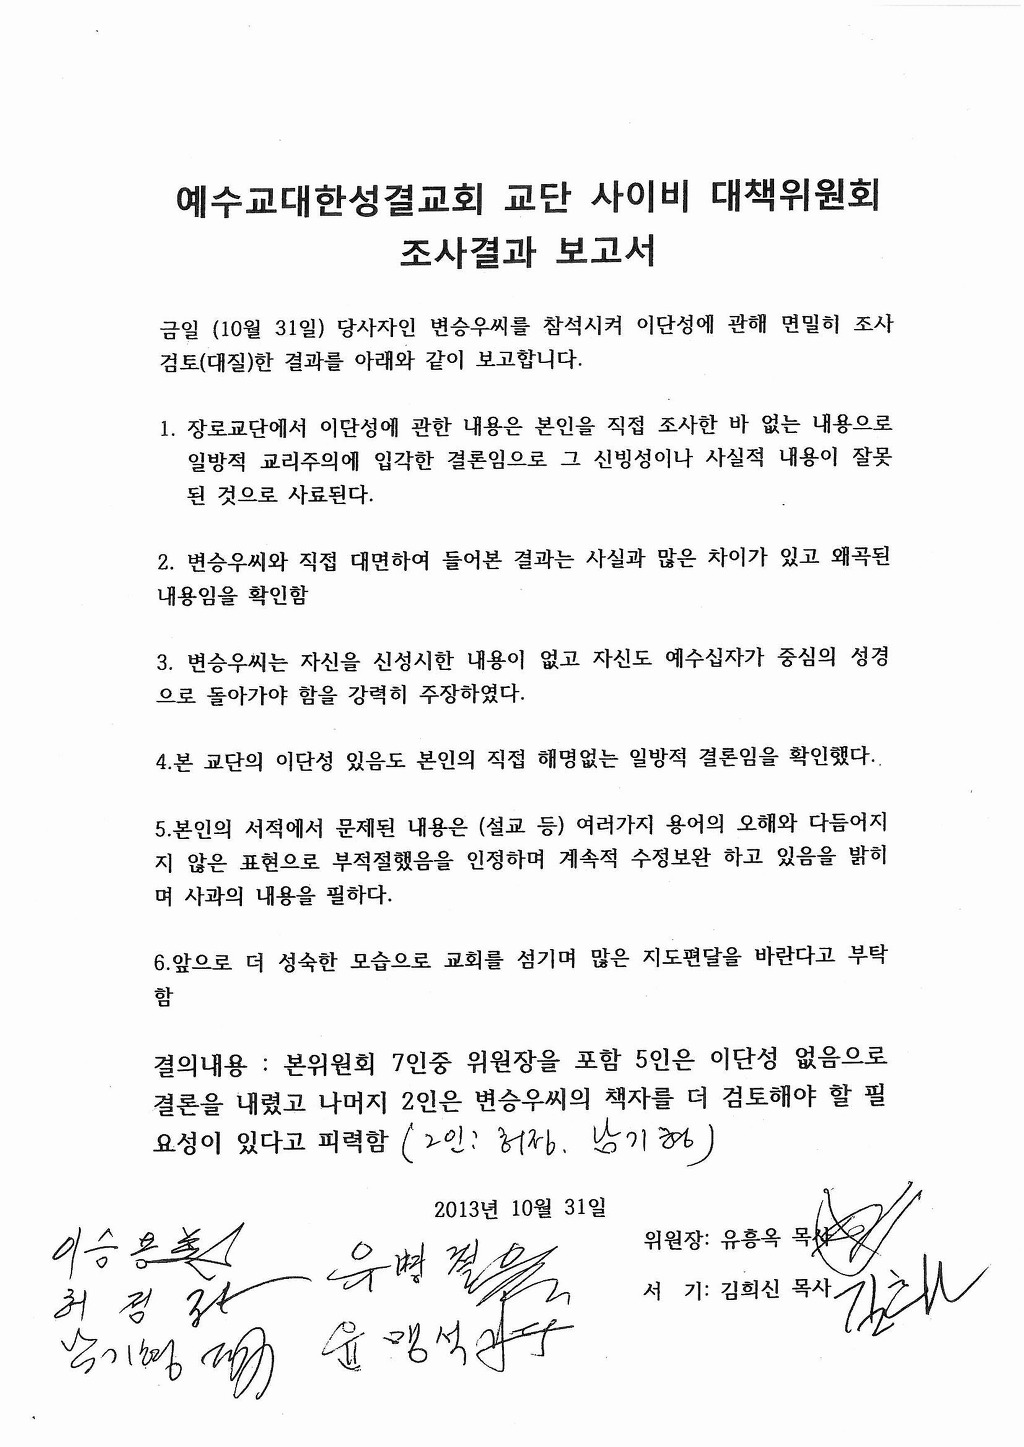 예수교대한성결교회 교단 사이비 대책위원회
조사결과 보고서
금일 (10월 31일) 당사자인 변승우씨를 참석시켜 이단성에 관해 면밀히 조사
검토(대질)한 결과를 아래와 같이 보고합니다.
1. 장로교단에서 이단성에 관한 내용은 본인을 직접 조사한 바 없는 내용으로
일방적 교리주의에 입각한 결론임으로 그 신빙성이나 사실적 내용이 잘못
된 것으로 사료된다.
2. 변승우씨와 직접 대면하여 들어본 결과는 사실과 많은 차이가 있고 왜곡된
내용임을 확인함
3. 변승우씨는 자신을 신성시한 내용이 없고 자신도 예수십자가 중심의 성경
으로 돌아가야 함을 강력히 주장하였다.
4.본 교단의 이단성 있음도 본인의 직접 해명없는 일방적 결론임을 확인했다.
5.본인의 서적에서 문제된 내용은 (설교 등) 여러가지 용어의 오해와 다듬어지
지 않은 표현으로 부적절했음을 인정하며 계속적 수정보완 하고 있음을 밝히
며 사과의 내용을 필하다.
6.앞으로 더 성숙한 모습으로 교회를 섬기며 많은 지도편달을 바란다고 부탁
함
결의내용 : 본위원회 7인중 위원장을 포함 5인은 이단성 없음으로
결론을 내렸고 나머지 2인은 변승우씨의 책자를 더 검토해야 할 필
요성이 있다고 피력함 (2인:
2013년 10월 31일
위원장: 유흥옥 목사
서 기: 김희신 목사
이승용
유병철
허정
남기형
윤맹석